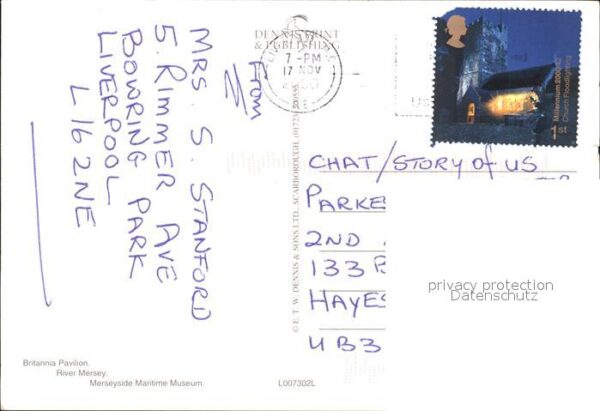 From
MRS. S. STANFORD
5. RIMMER AVE
BOWRING PARK
LIVERPOOL
L16 2NE
DENNIS PRINT
& PUBLISHING
7-PM
17 NOV
Millennium 2000
Church Floodlighting
1st
CHAT/STORY of US
PARKE
2ND
133
HAYES
UB3
privacy protection
Datenschutz
© E. T. W. DENNIS & SONS LTD., SCARBOROUGH
Britannia Pavilion.
River Mersey.
Merseyside Maritime Museum.
L007302L